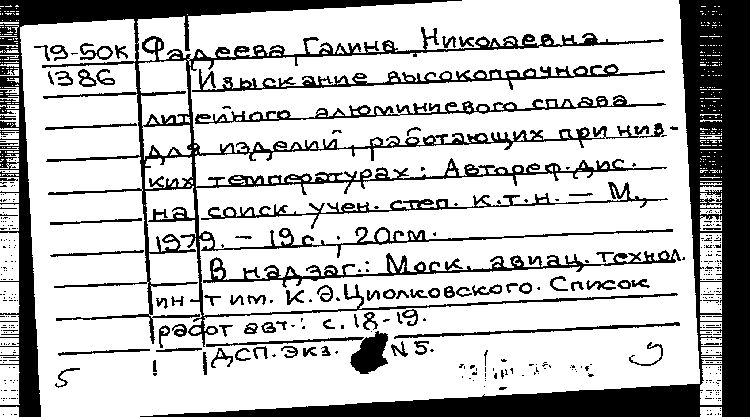 79-50к Фадеева, Галина Николаевна.
1386 Изыскание высокопрочного
литейного алюминиевого сплава
для изделий, работающих при низ-
ких температурах: Автореф. дис.
на соиск. учен. степ. к.т.н. — М.,
1979. - 19с.; 20см.
В надзаг.: Моск. авиац. технол.
ин-т им. К.Э.Циолковского. Список
работ авт.: с. 18-19.
ДСП. Экз. N5.
5